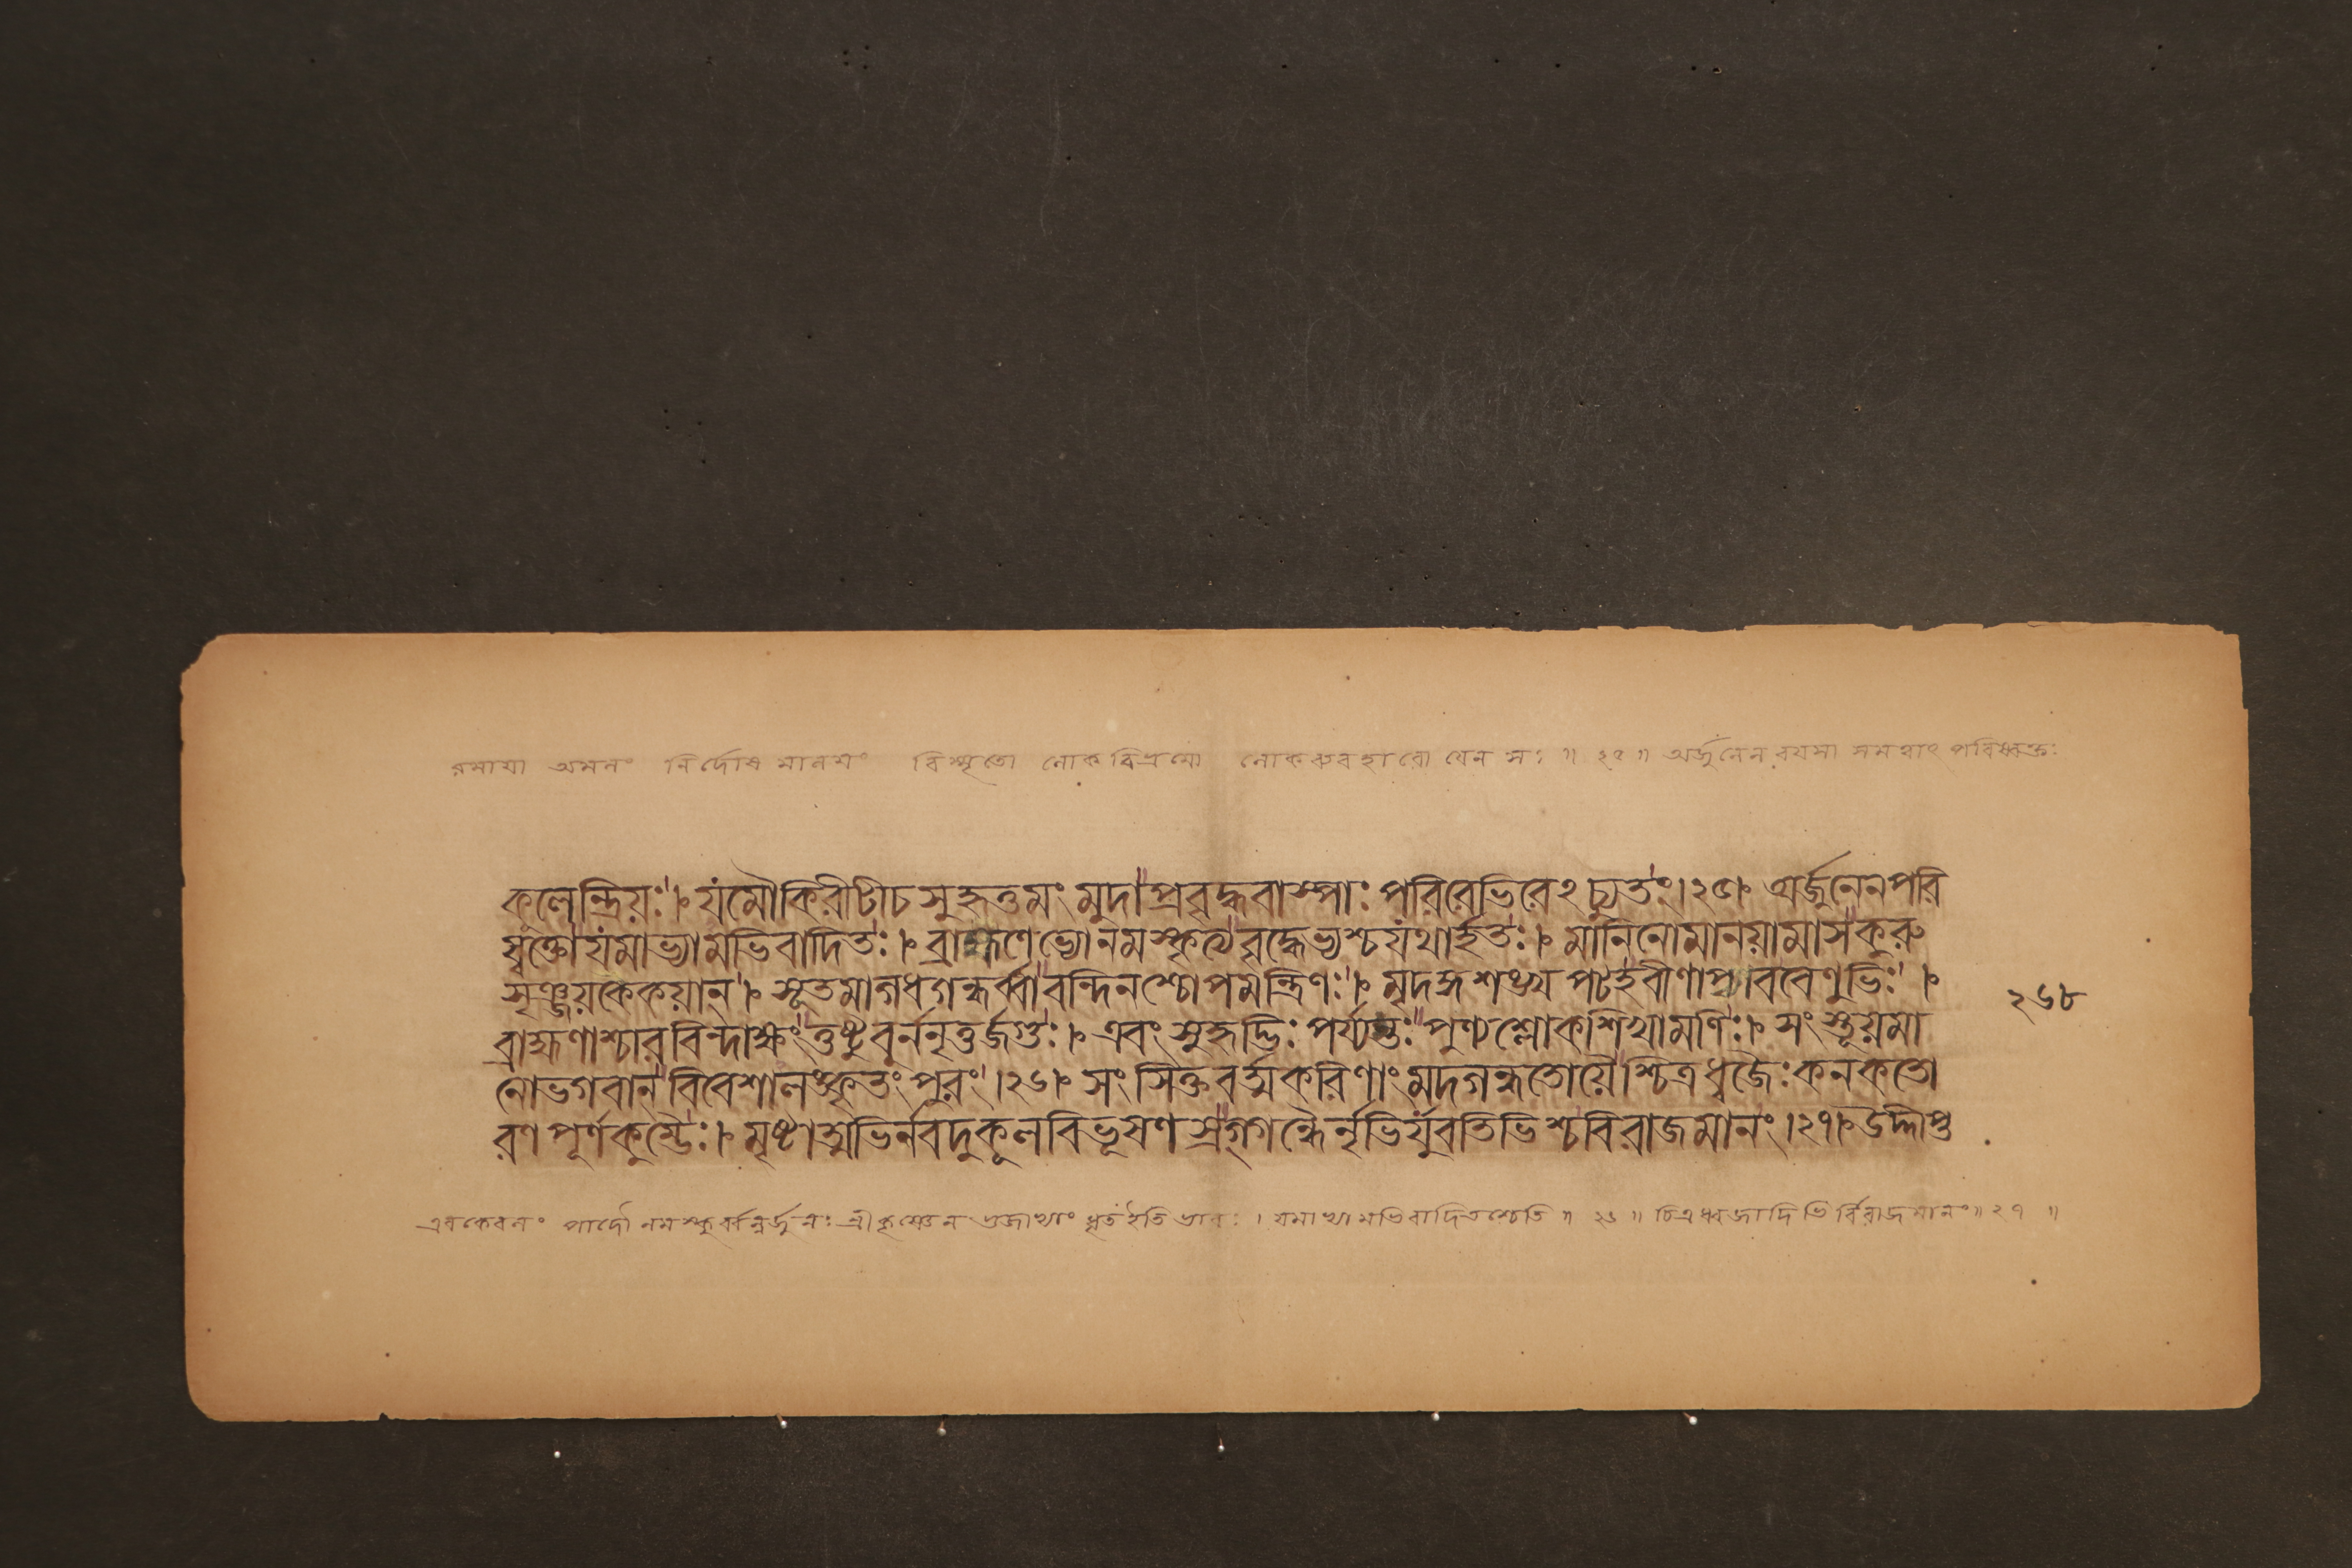 রমাযা অমলং নির্দোষ মালযং বিস্মৃতো লোকবিভ্রমো লোকব্যবহারো যেন সঃ ॥ ২৫ ॥ অর্জুনেন বযসা সমত্বাৎ পরিষ্বক্তঃ
কুলেন্দ্রিয়ঃ। যমৌকিরীটীচসুহৃত্তমং মুদাপ্রবৃদ্ধবাস্পাঃ পরিরেভিরেঽচ্যুতং।২৫। অর্জুনেনপরি
ষ্বক্তোযমাভ্যামভিবাদিতঃ। ব্রাহ্মণেভ্যোনমস্কৃত্যবৃদ্ধেভ্যশ্চযথার্হতঃ। মানিনোমানয়ামাসকুরু
সৃঞ্জয়কেকয়ান্। সূতমাগধগন্ধর্ব্বাবন্দিনশ্চোপমন্ত্রিণঃ। মৃদঙ্গশঙ্খপটহবীণাপণববেণুভিঃ।
ব্রাহ্মণাশ্চারবিন্দাক্ষং তুষ্টুবুর্ননৃতুর্জগুঃ। এবং সুহৃদ্ভিঃ পর্য্যস্তঃ পুণ্যশ্লোকশিখামণিঃ। সংস্তূয়মা
নোভগবান্বিবেশালঙ্কৃতং পুরং।২৬। সংসিক্তবর্ত্মকরিণাং মদগন্ধতোয়ৈশ্চিত্রধ্বজৈঃ কনকতো
রণপূর্ণকুম্ভৈঃ। মৃষ্টাত্মভির্নবদুকূলবিভূষণস্রগ্গন্ধৈর্নৃভির্যুবতিভিশ্চবিরাজমানং।২৭। উদ্দীপ্ত
২৬৮
এব কেবলং পাদৌ নমস্কুর্ব্বন্নর্জুনঃ শ্রীকৃষ্ণেন ভুজাভ্যাং ধৃত ইতি ভাবঃ । যমাভ্যামভিবাদিতশ্চেতি ॥ ২৬ ॥ চিত্রধ্বজাদিভির্বিরাজমানং ॥ ২৭ ॥